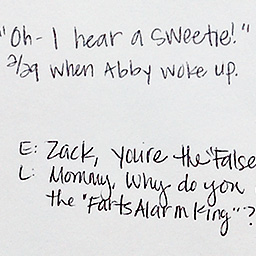 "Oh - I hear a sweetie!"
2/29 when Abby woke up.
E: Zack, you're the "False
L: Mommy, Why do you
the "Farts Alarm King"?